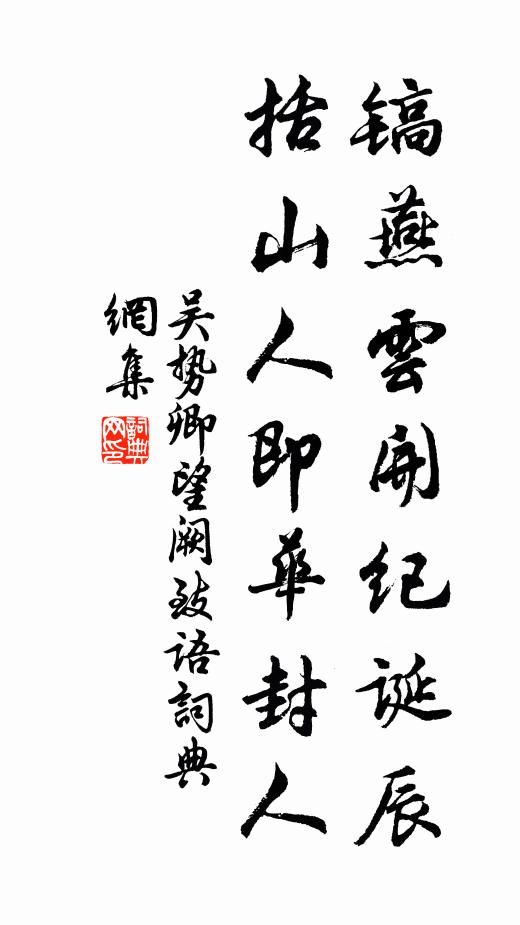 镐燕雲開纪誕辰
括山人即華封人
吴势卿望阙致語詞典
網集
詞典
网印